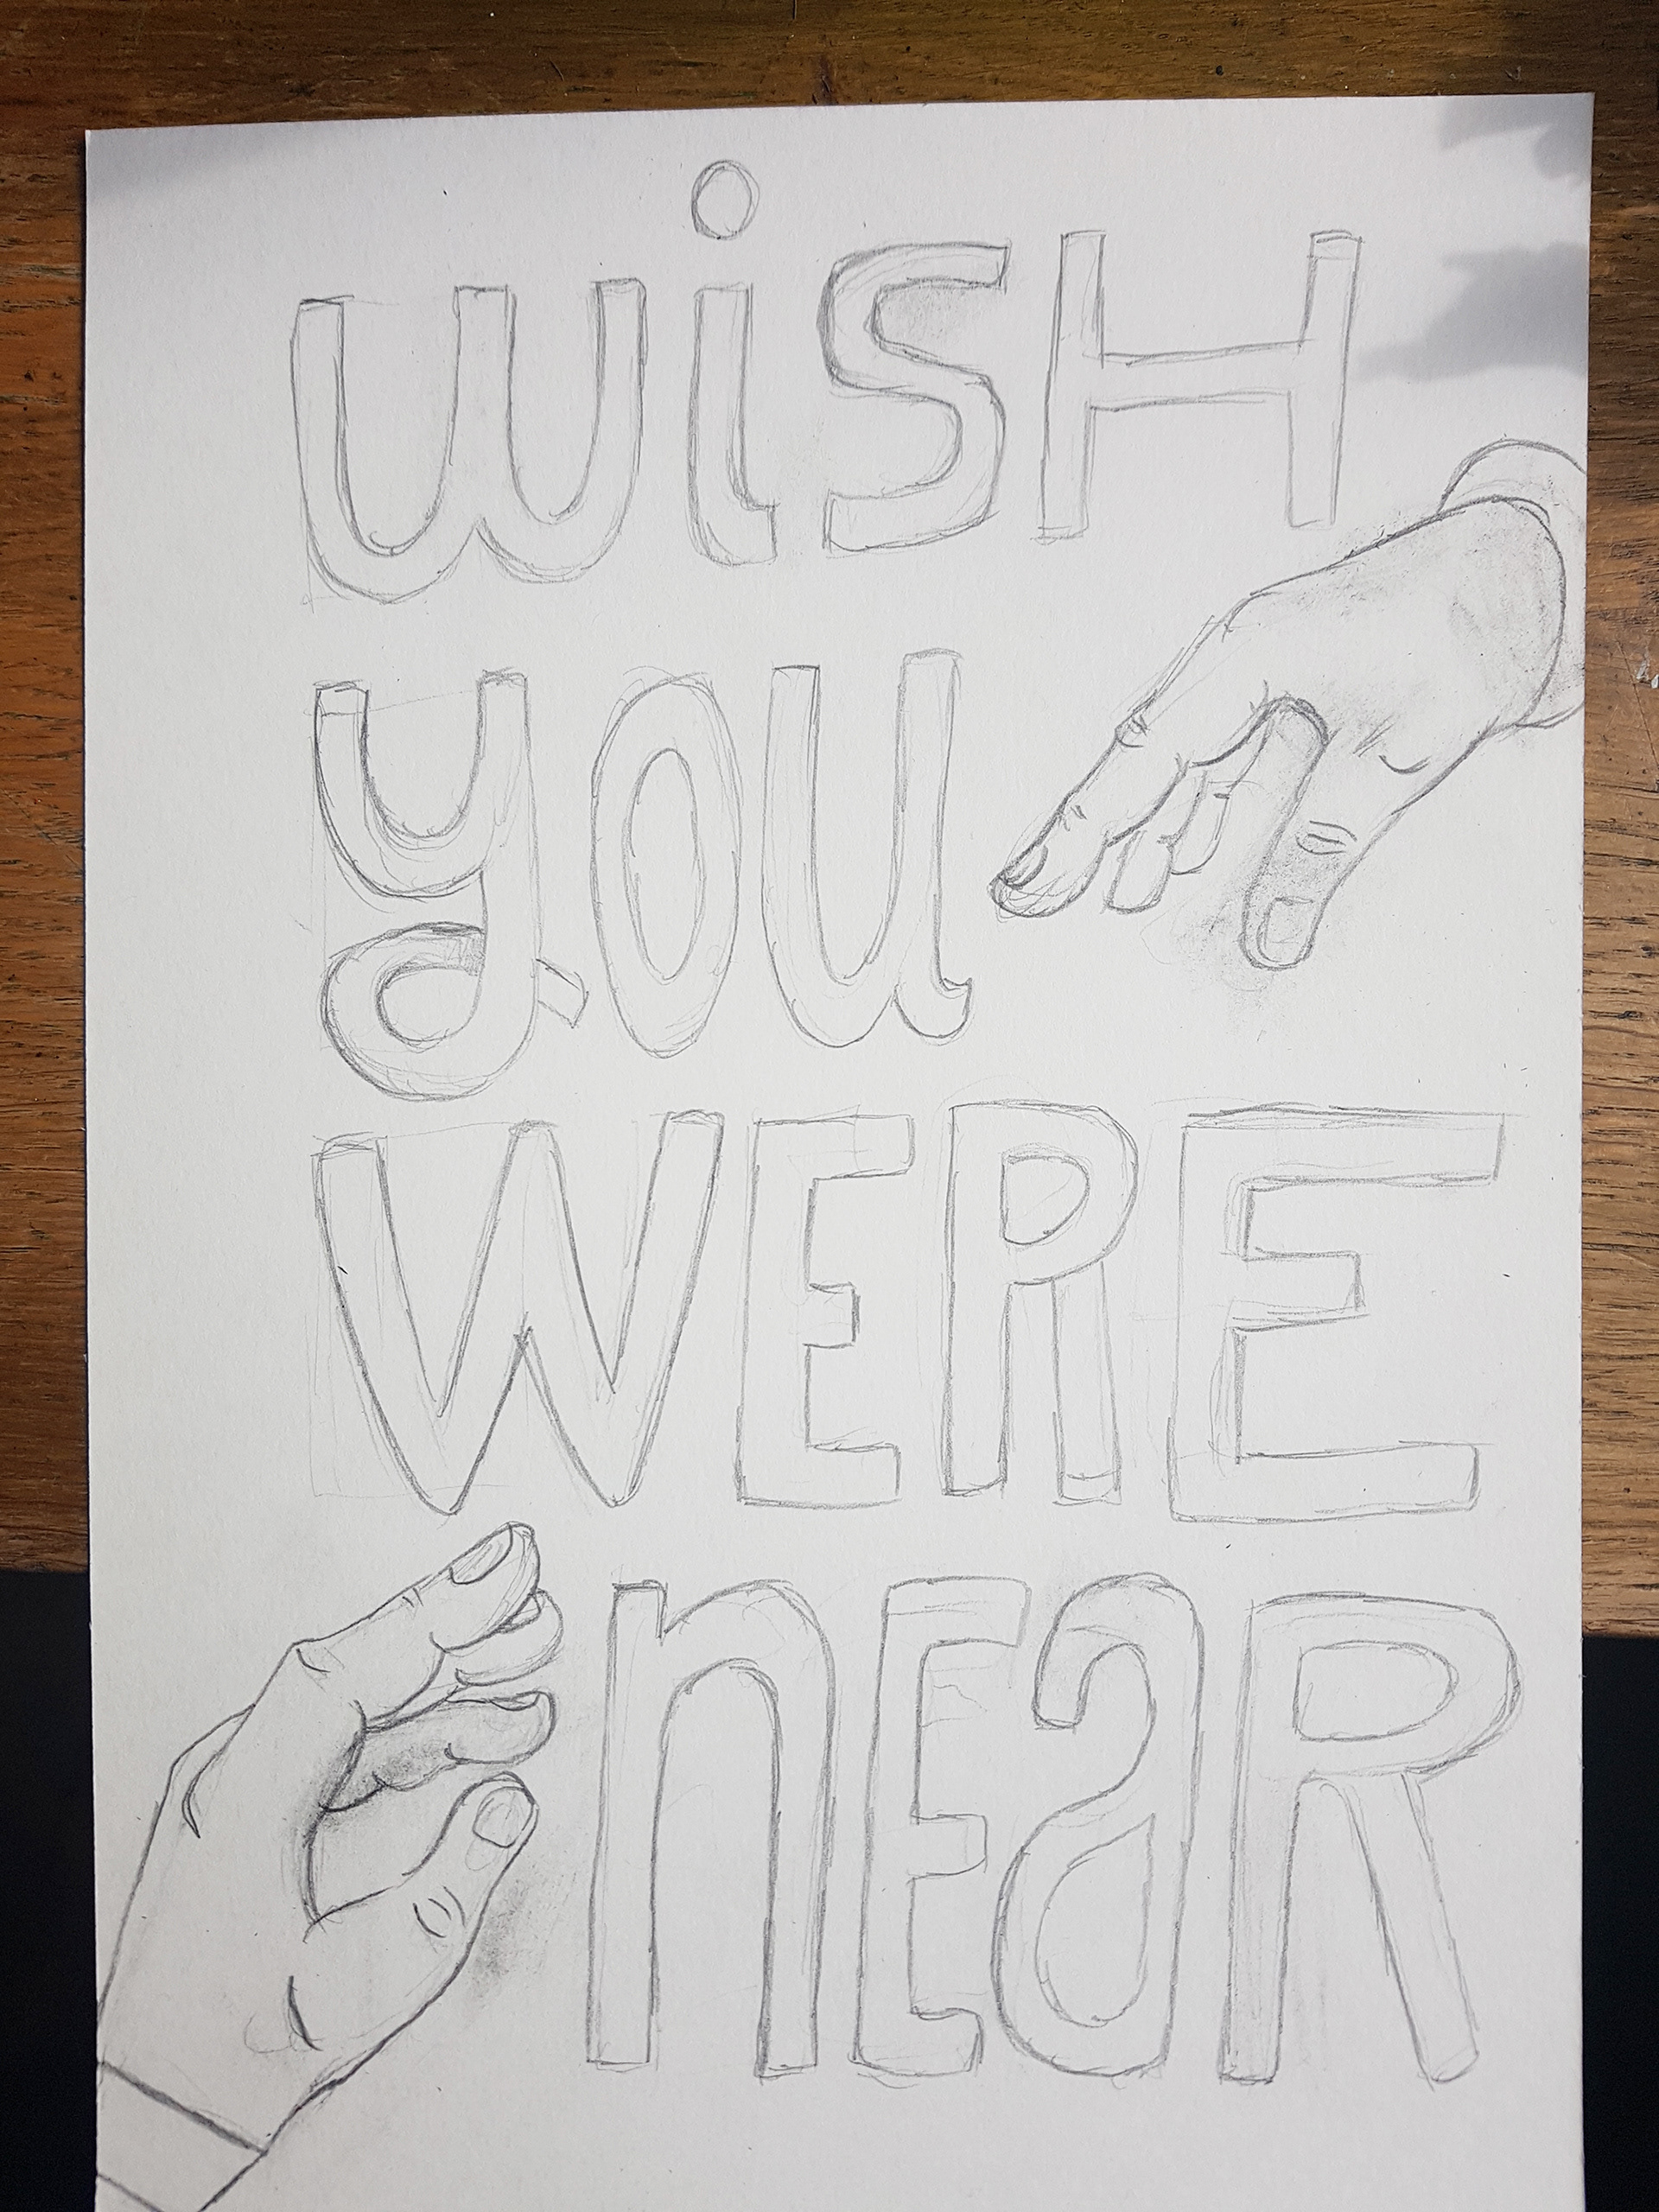 wisH
you
WERE
nEaR